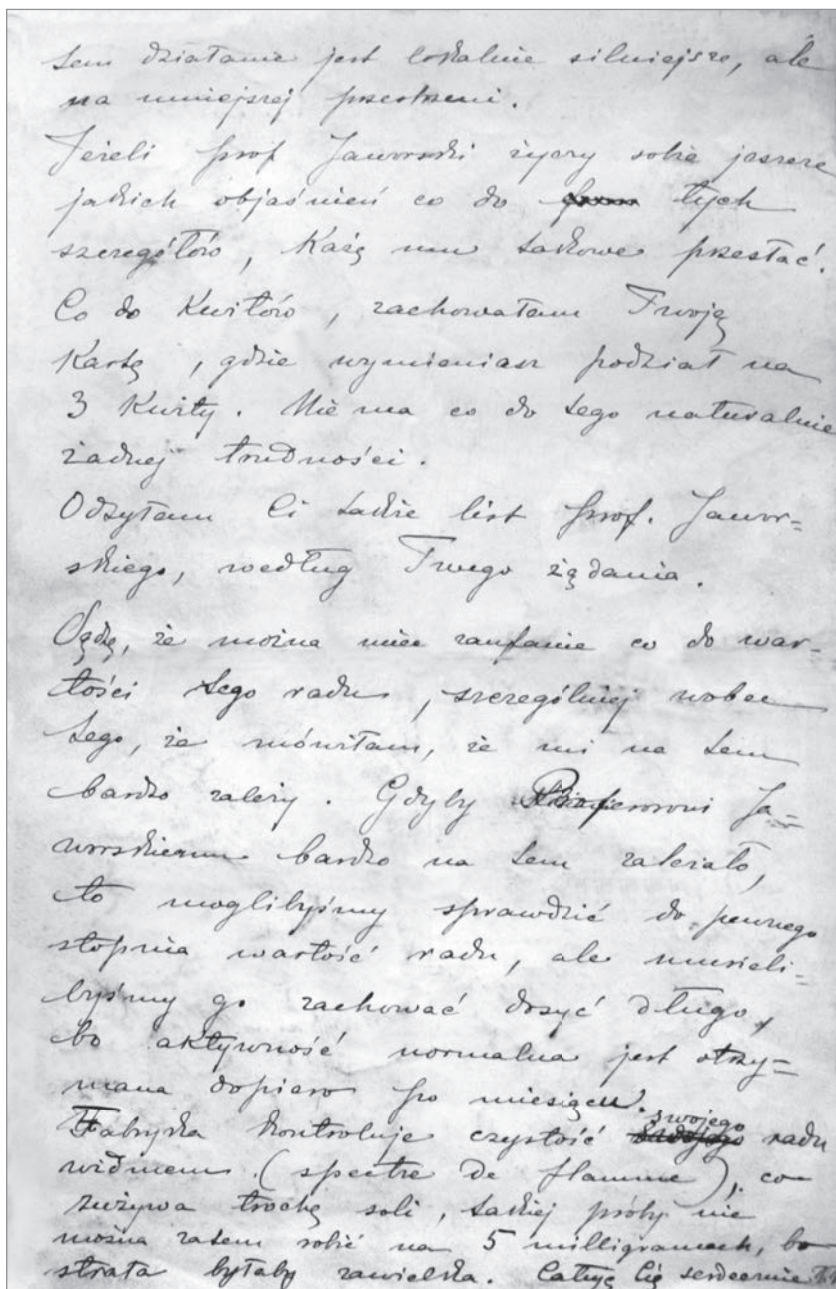 tem działanie jest lokalnie silniejsze, ale
na mniejszej przestrzeni.
Jeżeli prof Jaworski życzy sobie jeszcze
jakich objaśnień co do tych
szczegółów, każę mu takowe przesłać.
Co do Kwitów, zachowałam Twoją
Kartę, gdzie wymieniasz podział na
3 Kwity. Nie ma co do tego naturalnie
żadnej trudności.
Odsyłam Ci także list prof. Jawor=
skiego, według Twego żądania.
Sądzę, że można mieć zaufanie co do war=
tości tego radu, szczególniej wobec
tego, że mówiłam, że mi na tem
bardzo zależy. Gdyby Profesorowi Ja=
worskiemu bardzo na tem zależało,
to moglibyśmy sprawdzić do pewnego
stopnia wartość radu, ale musieli=
byśmy go zachować dosyć długo,
bo aktywność normalna jest otrzy=
mana dopiero po miesiącu.
Fabryka kontroluje czystość swojego radu
widmem (spectre de flamme), co
zużywa trochę soli, takiej próby nie
można zatem robić na 5 milligramach, bo
strata byłaby zawielka. Całuję Cię serdecznie